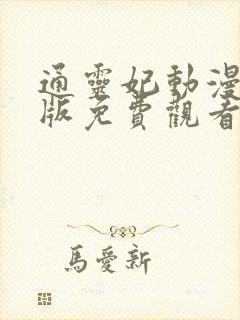 通靈妃動漫
版免費觀看
馬愛新